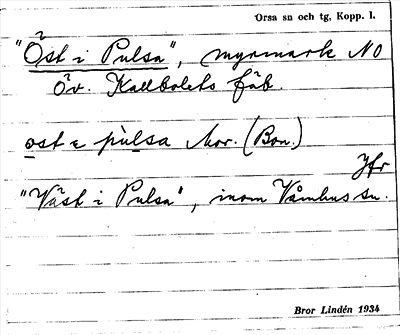 Orsa sn och tg, Kopp. l.
"Öst i Pulsa", myrmark NO
öv. Kallbolets fäb.
ost e pulsa Mor. (Bon.)
Jfr
"Väst i Pulsa", inom Våmhus sn.
Bror Lindén 1934